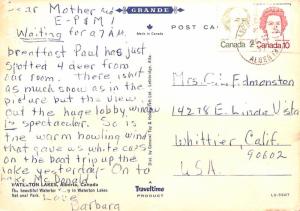 Dear Mother and
E-P&M!
Waiting for a 7 A.M.
breakfast Paul has just
spotted 4 deer from
our room. There isn't
as much snow as in the
picture but the view
out the huge lobby window
is superb. So is
the warm howling wind
that gave us white caps
on the boat trip up the
lake yesterday. On to
Lake McDonald.
Love
Barbara
WATERTON LAKES, Alberta, Canada
The beautiful Waterton in Waterton Lakes
National Park.
GRANDE
POST CARD
Canada 2
Canada 10
Mrs. G. Edmonston
14278 E. Eunida Vista
Whittier, Calif.
90602
U.S.A.
Traveltime
PRODUCT